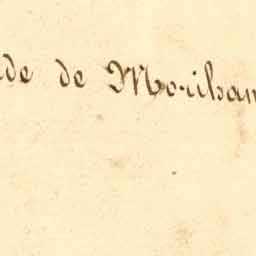 de de Morihan